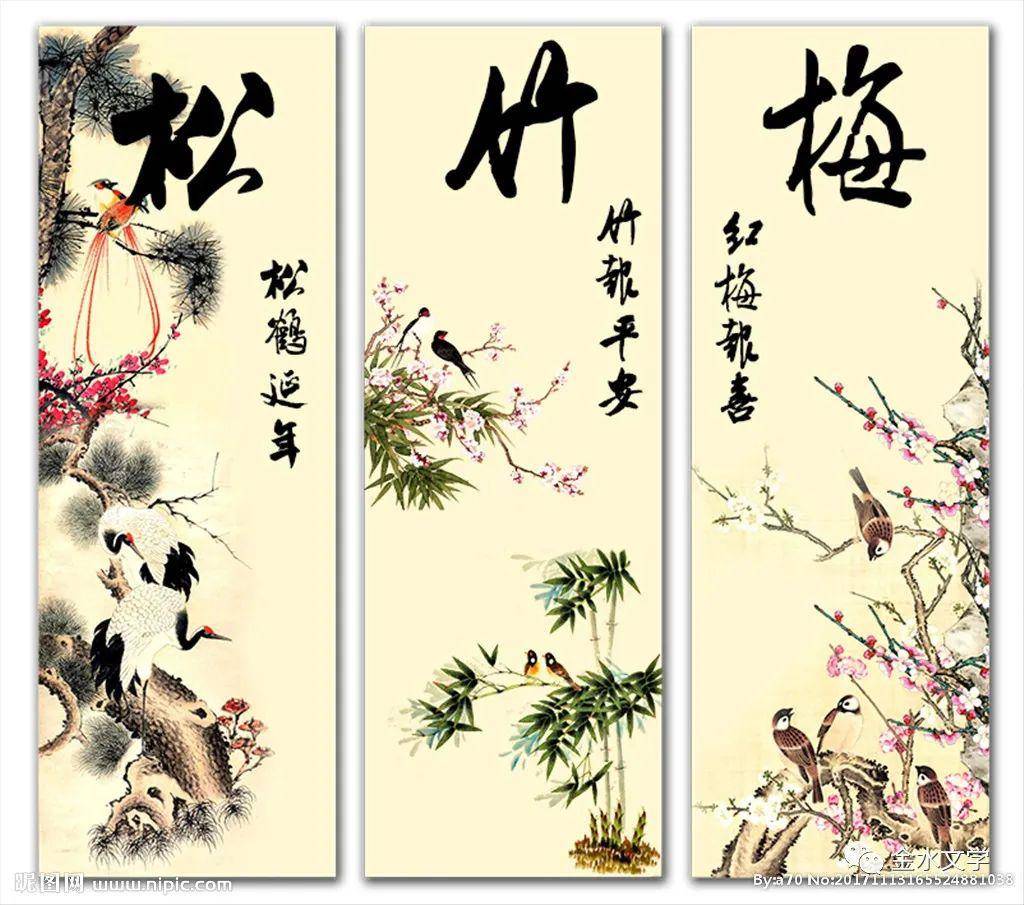 松
松鹤延年
竹
竹報平安
梅
红梅報喜
昵图网 www.nipic.com
金水文学
By:a70 No:20171113165524881038